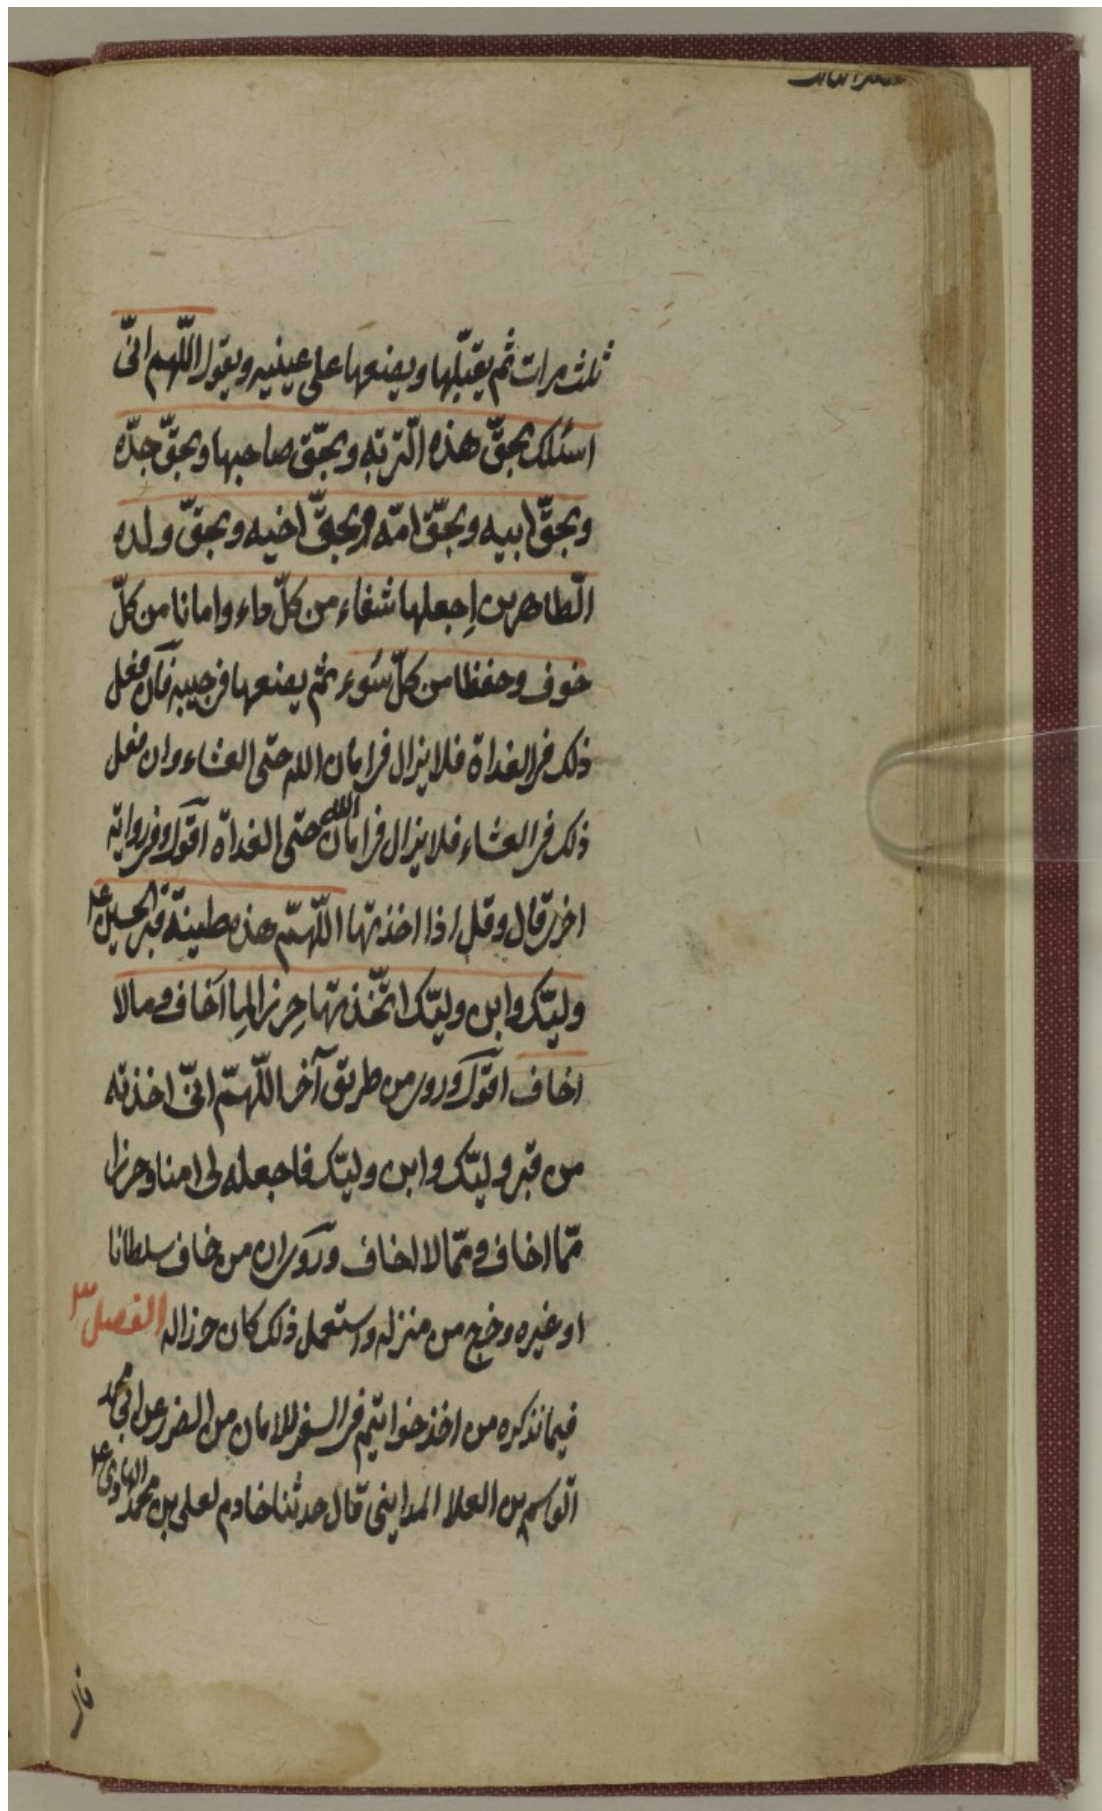 ثلث مرات ثم يقبّلها ويضعها على عينيه ويقول اللّهم انّى
اسئلك بحقّ هذه التّربة وبحّق صاحبها وبحقّ جدّه
وبحقّ ابيه وبحّق امّه وبحقّ اخيه وبحقّ ولده
الّطاهرين اِجعلها شفاء من كلّ داء وامانا من كلّ
خوف وحفظا من كلّ سُوء ثم يضعها فى جيبه فان فعل
ذلك فى الغداة فلا يزال فى امان الله حتى العشاء وان فعل
ذلك فى العشاء فلا يزال فى امان الله حتى الغداة اقول وفى رواية
اخرى قال وقل اذا اخذتها اللّهمّ هذه طينة قبر الحسين ع
وليّك وابن وليّك اتّخذتها حِرزا لِما اخاف وما لا
اخاف اقول وروى من طريق آخر اللّهمّ انّى اخذته
من قبر وليّك وابن وليّك فاجعله لى امنا وحرزا
ممّا اخاف وممّا لا اخاف وروى ان من خاف سلطانا
او غيره وخرج من منزله واستعمل ذلك كان حرزا له الفصل ٣
فيما نذكره من اخذ خواتيم فى السفر للامان من الضرر عن ابى محمد
القاسم بن العلا المداينى قال حدثنا خادم لعلى بن محمد الهادى ع
قال